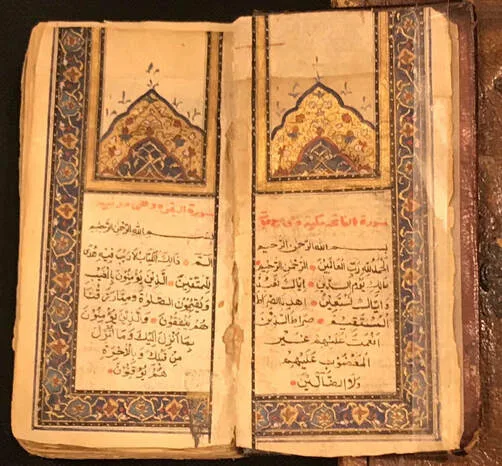 سورة الفاتحة مكية وهى سبع آيات
بسم الله الرحمن الرحيم
الحمد لله رب العالمين الرحمن الرحيم
مالك يوم الدين إياك نعبد
وإياك نستعين اهدنا الصراط
المستقيم صراط الذين
أنعمت عليهم غير
المغضوب عليهم
ولا الضالين
سورة البقرة وهى مدنية
بسم الله الرحمن الرحيم
الم ذلك الكتاب لا ريب فيه هدى
للمتقين الذين يؤمنون بالغيب
ويقيمون الصلوة ومما رزقنا
هم ينفقون والذين يؤمنون
بما أنزل إليك وما أنزل
من قبلك وبالآخرة
هم يوقنون